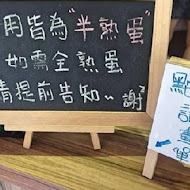 用皆為"半熟蛋"
如需全熟蛋
請提前告知~謝
點